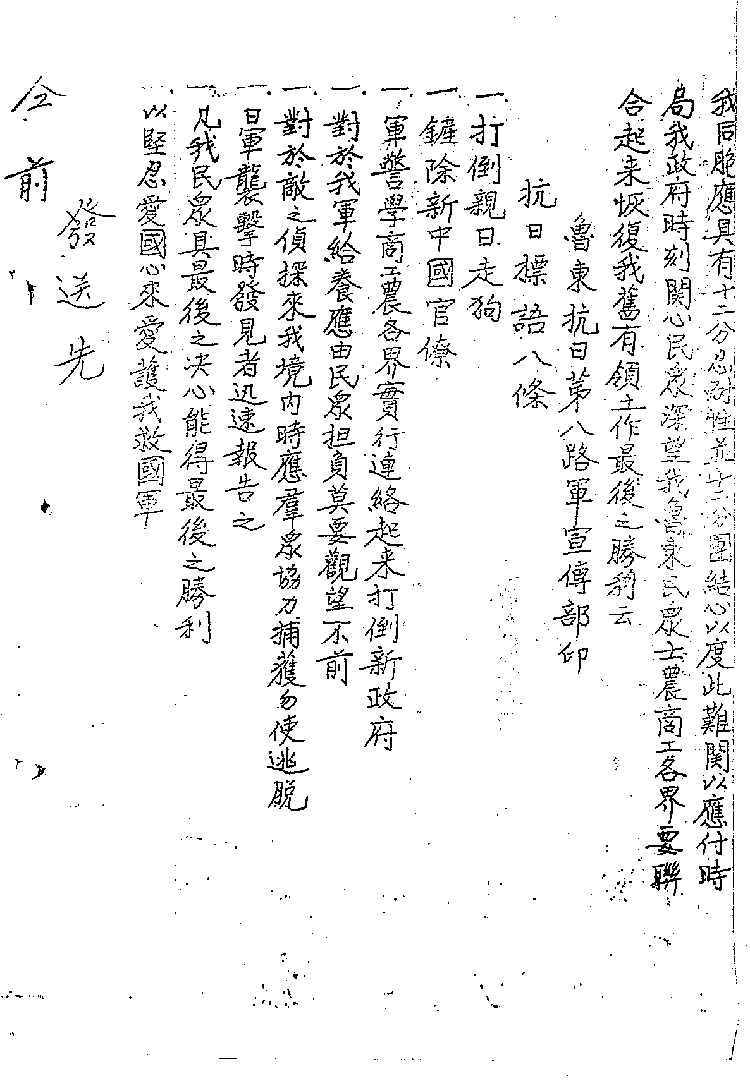 我同胞應具有十二分忍耐性並十二分團結心以度此難関以應付時
局我政府時刻関心民衆深望我魯東民衆士農商工各界要聯
合起来恢復我舊有領土作最後之勝利云
魯東抗日第八路軍宣傳部印
抗日標語八條
一、打倒親日走狗
一、鏟除新中國官僚
一、軍警學商工農各界實行連絡起来打倒新政府
一、對於我軍給養應由民衆担負莫要觀望不前
一、對於敵之偵探来我境内時應羣衆協力捕獲勿使逃脱
一、日軍襲擊時發見者迅速報告之
一、凡我民衆具最後之決心能得最後之勝利
一、以堅忍愛國心來愛護我救國軍
發送先
仝前